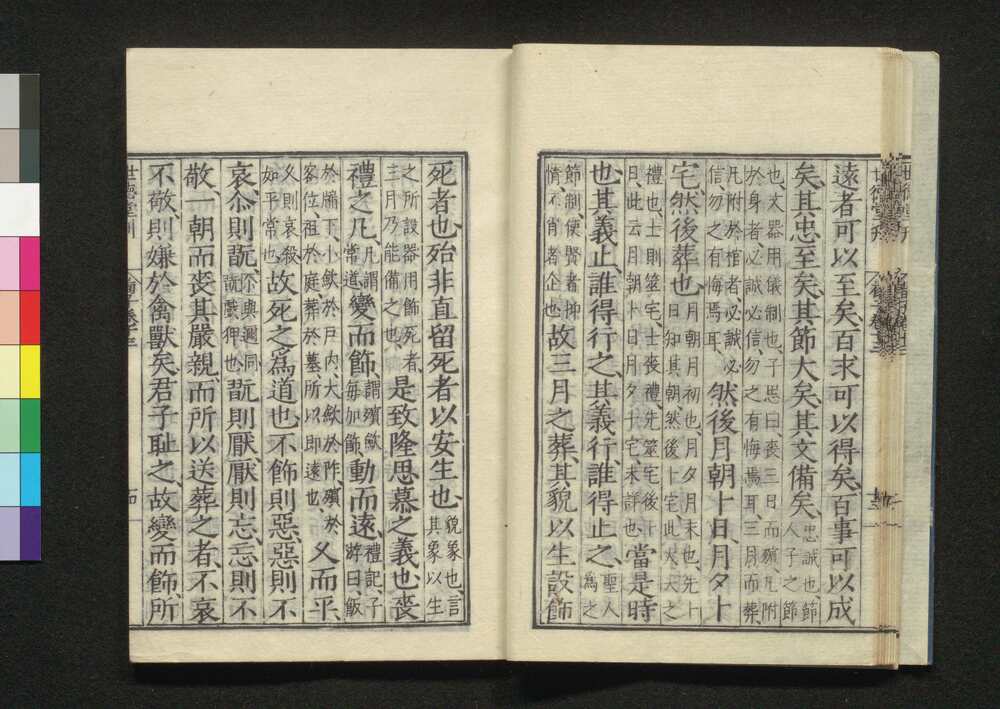 遠者可以至矣、百求可以得矣、百事可以成
矣、其忠至矣、其節大矣、其文備矣、忠誠也、節
人子之節
也、文器用儀制也、子思曰喪三日而殯、凡附
於身者、必誠必信、勿之有悔焉耳、三月而葬、
凡附於棺者、必誠必
信、勿之有悔焉耳、然後月朝卜日、月夕卜
宅、然後葬也、月朝月初也、月夕月末也、先卜
日知其朝、然後卜宅、此大夫之
禮也、士則筮宅、士喪禮先筮宅、後卜
日、此云月朝卜日、月夕卜宅、未詳也、當是時
也、其義止、誰得行之、其義行、誰得止之、聖人
為之
節制、使賢者抑
情、不肖者企也、故三月之葬、其貌以生設飾
死者也、殆非直留死者以安生也、貌象也、言
其象以生
之所設器用飾死者、
三月乃能備之也、是致隆思慕之義也、喪
禮之凡、凡謂
常道、變而飾、謂殯斂
每加飾、動而遠、禮記、子
游曰、飯
於牖下、小斂於戶內、大斂於阼、殯於
客位、祖於庭、葬於墓、所以即遠也、久而平、
久則哀殺
如平常也、故死之爲道也、不飾則惡、惡則不
哀、尒則翫、尒與邇同、
翫戲狎也、翫則厭、厭則忘、忘則不
敬、一朝而喪其嚴親、而所以送葬之者、不哀
不敬、則嫌於禽獸矣、君子耻之、故變而飾、所
世德堂刊